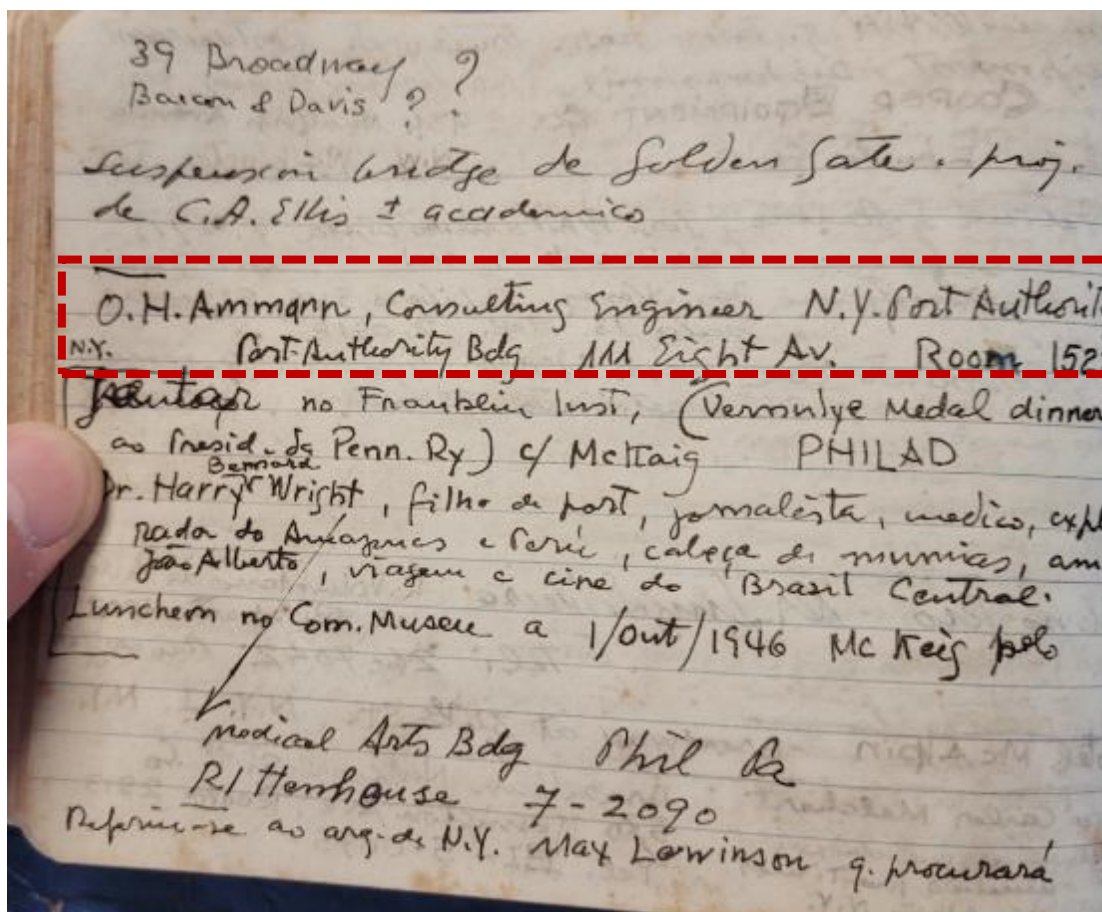 39 Broadway ?
Bacon & Davis ? ?
suspension bridge de Golden Gate. proj.
de C.A. Ellis ± academico
O.H. Ammann, Consulting Engineer N.Y. Port Authorit
N.Y. Port Authority Bdg 111 Eight Av. Room 152
Jantar no Franklin Inst, (Vermulye Medal dinner
ao Presid. da Penn. Ry) c/ McKaig PHILAD
Bernard
Dr. Harry Wright, filho de port, jornalista, medico, expl
rador do Amazonas e Perú, cabeça de mumias, am
João Alberto, viagem e cine do Brasil Central.
Luncheon no Com. Museu a 1/out/1946 McKeig pelo
Medical Arts Bdg Phil Pa
RIttenhouse 7-2090
Referiu-se ao arq. de N.Y. Max Lowinson q. procurará